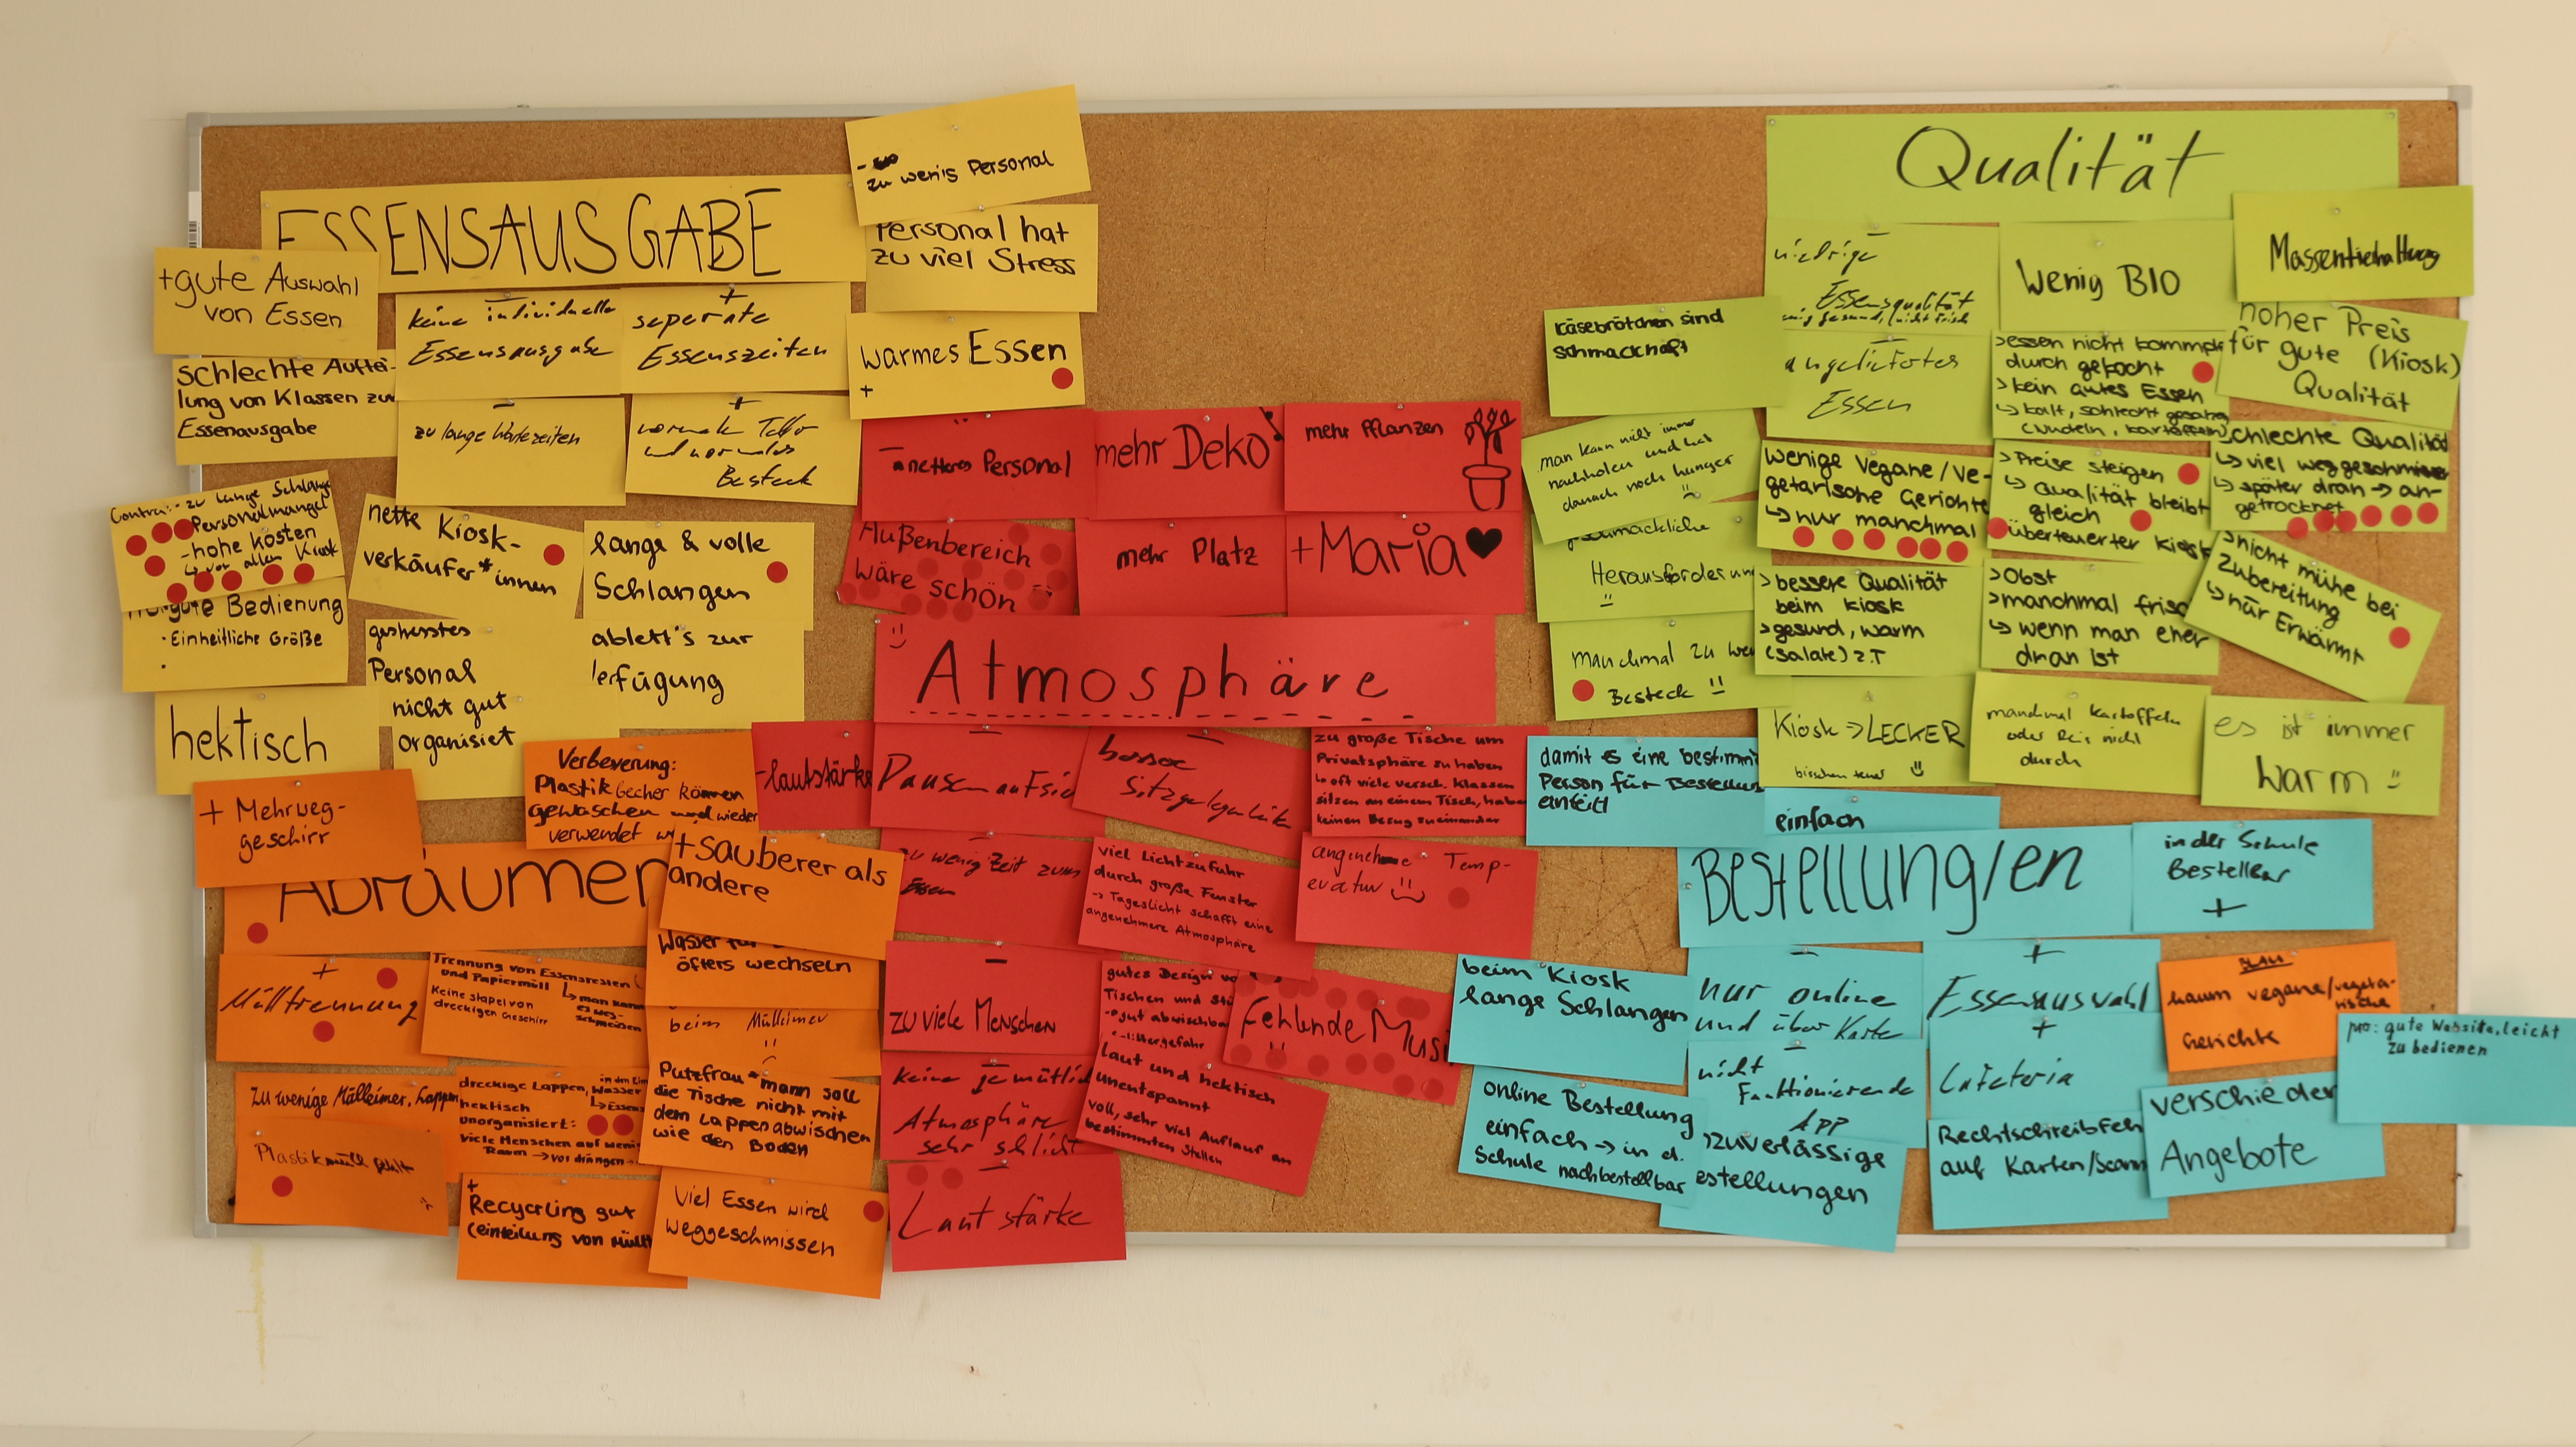 ESSENSAUSGABE
-
zu wenig Personal
Personal hat
zu viel Stress
+gute Auswahl
von Essen
-
keine individuelle
Essensausgabe
+
seperate
Essenszeiten
warmes Essen
+
schlechte Auftei-
lung von Klassen zur
Essenausgabe
-
zu lange Wartezeiten
+
normale Teller
und normales
Besteck
Contra: - zu lange Schlange
- Personalmangel
- hohe kosten
↳ vor allem Kiosk
nette Kiosk-
verkäufer*innen
lange & volle
Schlangen
gute Bedienung
· Einheitliche Größe
·
gestresstes
Personal
nicht gut
organisiet
ablett's zur
erfügung
hektisch
- netteres Personal
mehr Deko
mehr Pflanzen
Außenbereich
wäre schön
mehr Platz
+Maria♥
Atmosphäre
-lautstärke
-
-
besse
Sitzgelegenheit
zu große Tische um
Privatsphäre zu haben
↳ oft viele versch. Klassen
sitzen an einem Tisch, haben
keinen Bezug zueinander
-
zu wenig Zeit zum
Essen
viel Lichtzufuhr
durch große Fenster
→ Tageslicht schafft eine
angenehmere Atmosphäre
angenehme Temp-
eratur
-
zu viele Menschen
gutes Design
Tischen und
gut abwischba
fehlende Musi
-
keine
Atmosphäre
sehr schlicht
laut und hektisch
unentspannt
voll, sehr viel Auflauf an
bestimmten Stellen
-
Lautstärke
+ Mehrweg-
geschirr
Verbeserung:
Plastik becher können
gewaschen und wieder
verwendet
Abräumen
+sauberer als
andere
+
Mülltrennung
Trennung von Essensresten
und Papiermüll
↳ man kann
es weg-
schmeißen
Keine stapel von
dreckigen Geschirr
Wasser für
öfters wechseln
beim Mülleimer
zu wenige Mülleimer, Lappen
dreckige Lappen,
hektisch
unorganisiert:
viele Menschen auf wenig
Raum → vordrängen
Putzfrau*mann soll
die Tische nicht mit
dem Lappen abwischen
wie den Boden
Plastikmüll fehlt
+
Recycling gut
(einteilung von Müll
Viel Essen wird
weggeschmissen
Qualität
-
niedrige
Essensqualität
Wenig BIO
Massentierhaltung
käsebrötchen sind
schmackhaft
-
angeliefertes
Essen
>essen nicht kommplett
durch gekocht
>kein gutes Essen
↳ kalt, schlecht gesalzen
(Nudeln, kartoffeln)
hoher Preis
für gute (Kiosk)
Qualität
man kann nicht immer
nachholen und hat
danach noch hunger
wenige Vegane/Ve-
getarische Gerichte
↳ nur manchmal
>Preise steigen
↳ Qualität bleibt
gleich
überteuerter Kiosk
schlechte Qualität
↳ viel weggeschmissen
↳ später dran → an-
getrocknet
geschmackliche
Herausforderung
>bessere Qualität
beim kiosk
>gesund, warm
(salate) z.T
>Obst
>manchmal frisch
↳ wenn man eher
dran ist
>nicht mühe bei
Zubereitung
↳ nur Erwärmt
manchmal zu wenig
Besteck
Kiosk → LECKER
bisschen teuer
manchmal kartoffeln
oder Reis nicht
durch
es ist immer
warm
damit es eine bestimm
Person für Bestellun
einfach
Bestellung/en
in der Schule
Bestellbar
+
beim Kiosk
lange Schlangen
-
nur online
und über Karte
+
Essensauswahl
kaum vegane/vegeta-
rische
Gerichte
pro: gute Website, leicht
zu bedienen
online Bestellung
einfach → in d.
Schule nachbestellbar
-
nicht
Funktionierende
APP
+
Cafeteria
zuverlässige
estellungen
Rechtschreibfeh
auf Karten/Scann
verschieden
Angebote